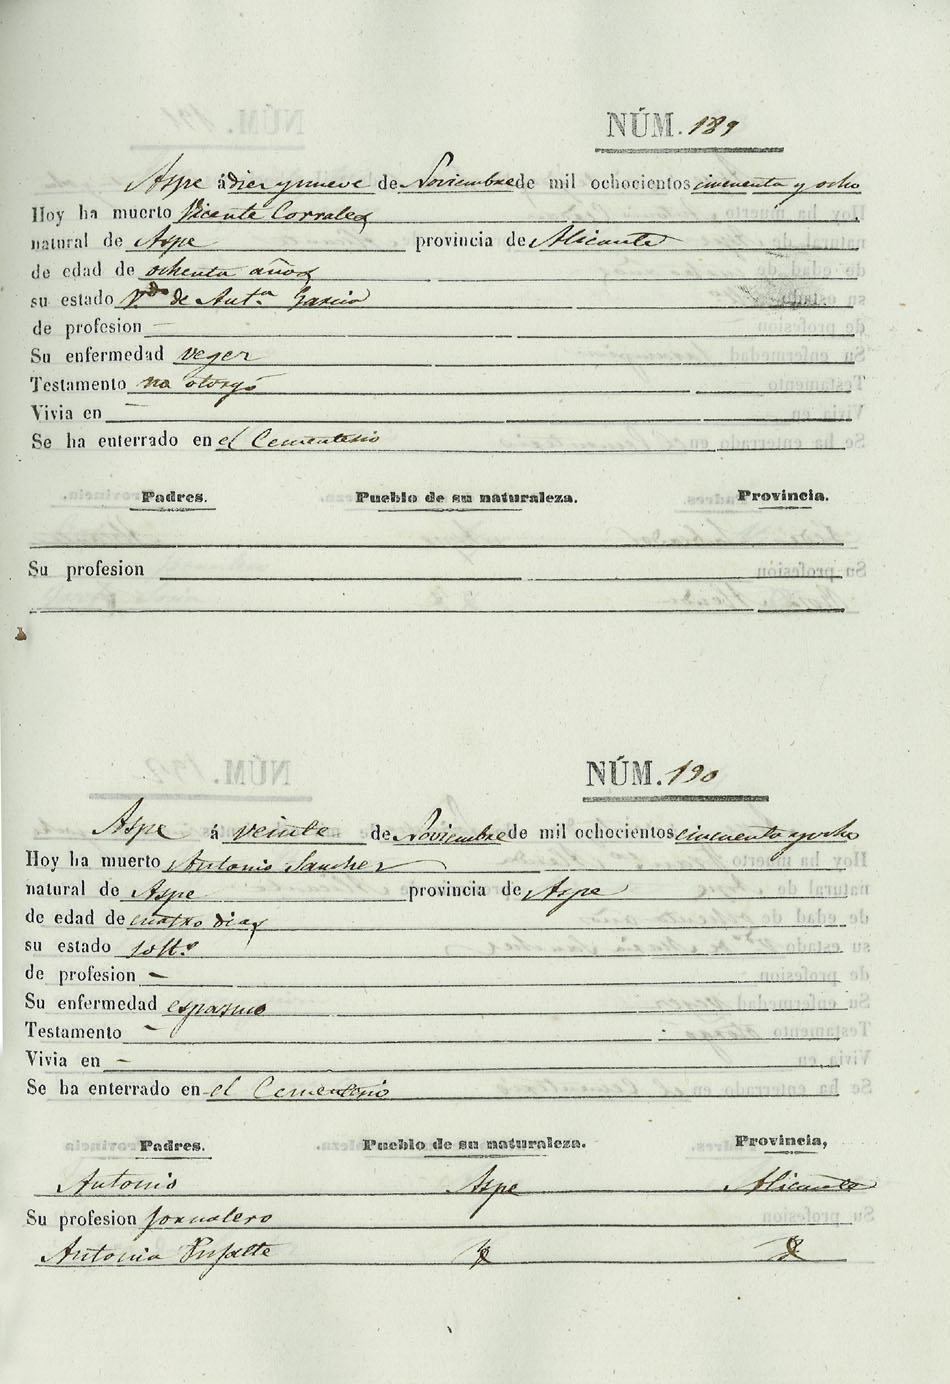 NÚM. 189
Aspe á diez y nueve de Noviembre de mil ochocientos cincuenta y ocho
Hoy ha muerto Vicente Corrales
natural de Aspe provincia de Alicante
de edad de ochenta años
su estado V.do de Ant.a Garcia
de profesion —
Su enfermedad veger
Testamento no otorgó
Vivia en —
Se ha enterrado en el Cementerio
Padres. Pueblo de su naturaleza. Provincia.
Su profesion
NÚM. 190
Aspe á veinte de Noviembre de mil ochocientos cincuenta y ocho
Hoy ha muerto Antonio Sanchez
natural de Aspe provincia de Aspe
de edad de cuatro dias
su estado solt.o
de profesion —
Su enfermedad espasmo
Testamento —
Vivia en —
Se ha enterrado en el Cementerio
Padres. Pueblo de su naturaleza. Provincia,
Antonio Aspe Alicante
Su profesion Jornalero
Antonia